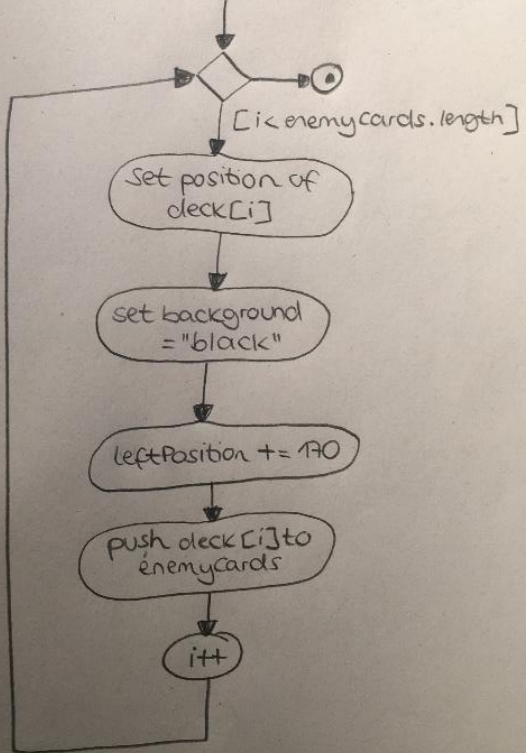 [i<enemycards.length]
set position of
deck[i]
set background
="black"
leftPosition += 170
push deck[i] to
enemycards
i++